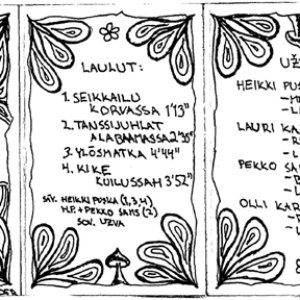 LAULUT:
1. SEIKKAILU
KORVASSA 1'13"
2. TANSSIJUHLAT
ALABAMASSA
3. YLÖSMATKA 4'44"
4. KIKE
KUILUSSAH 3'52"
SÄV. HEIKKI PUSKA (1,3,4)
H.P. + PEKKO SAMS (2)
SOV. UZVA
UZ
HEIKKI PUS
LAURI KAR
PEKKO SA
OLLI KAR